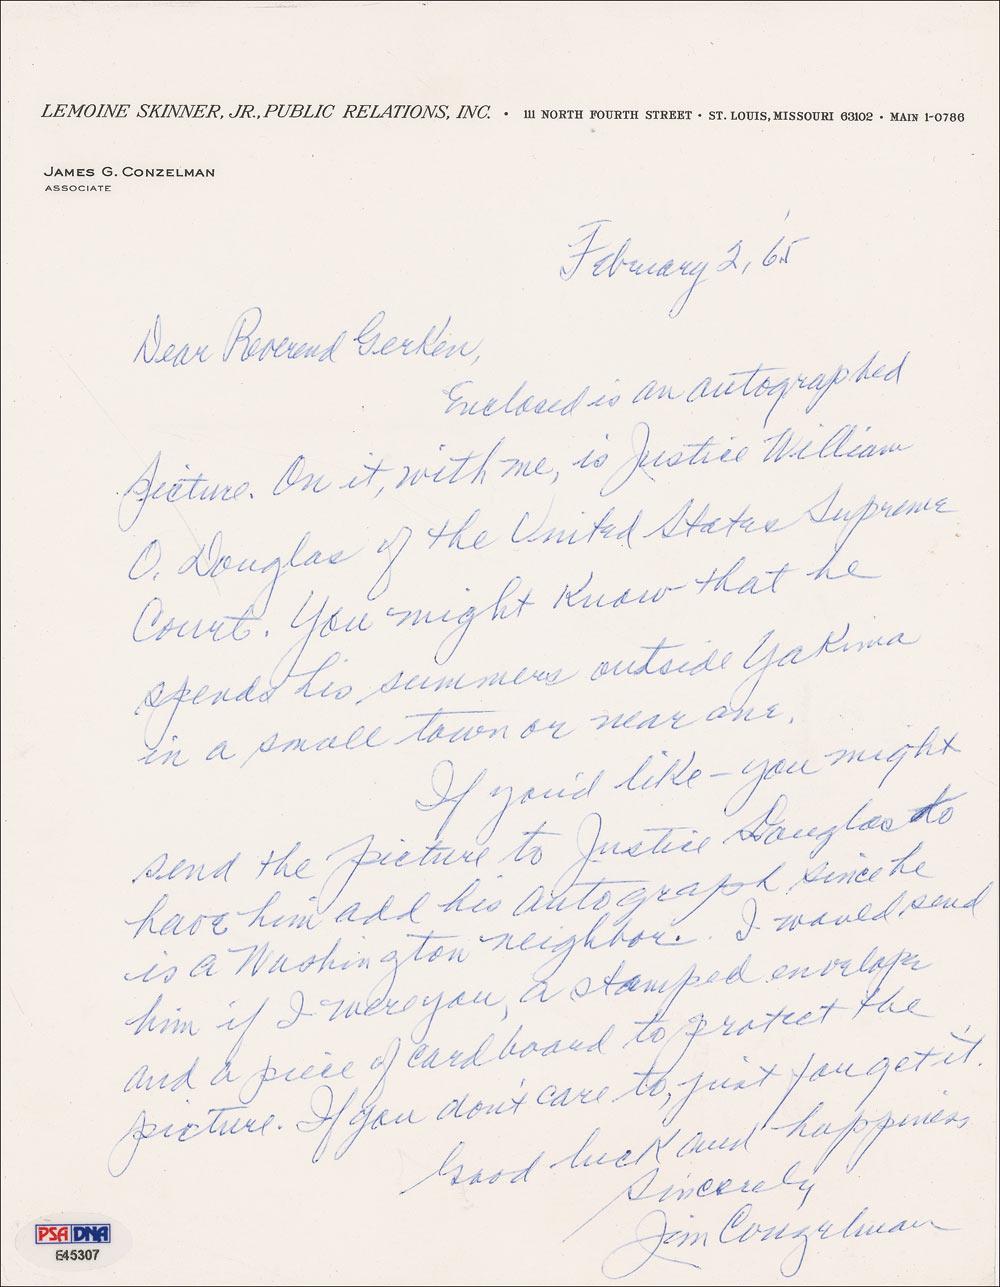 LEMOINE SKINNER, JR., PUBLIC RELATIONS, INC. • 111 NORTH FOURTH STREET • ST. LOUIS, MISSOURI 63102 • MAIN 1-0786
JAMES G. CONZELMAN
ASSOCIATE
February 2, '65
Dear Reverend Gerken,
Enclosed is an autographed
picture. On it, with me, is Justice William
O. Douglas of the United States Supreme
Court. You might know that he
spends his summers outside Yakima
in a small town or near one.
If you'd like – you might
send the picture to Justice Douglas to
have him add his autograph since he
is a Washington neighbor. I would send
him if I were you, a stamped envelope
and a piece of cardboard to protect the
picture. If you don't care to, just forget it.
Good luck and happiness
Sincerely
Jim Conzelman
PSA DNA
E45307